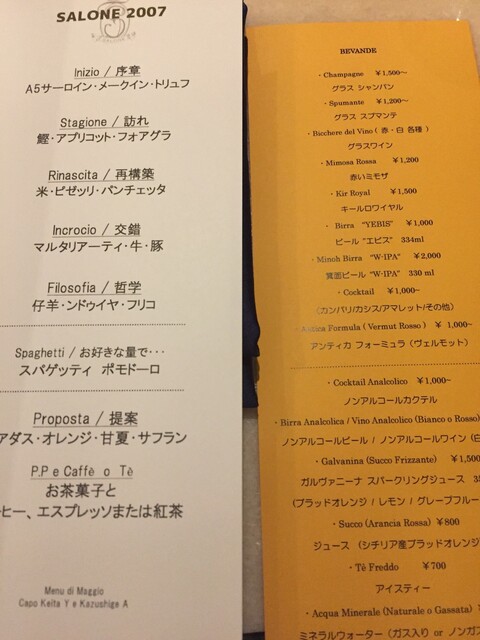 SALONE 2007
Inizio / 序章
A5サーロイン・メークイン・トリュフ
Stagione / 訪れ
鰹・アプリコット・フォアグラ
Rinascita / 再構築
米・ピゼッリ・パンチェッタ
Incrocio / 交錯
マルタリアーティ・牛・豚
Filosofia / 哲学
仔羊・ンドゥイヤ・フリコ
Spaghetti / お好きな量で・・・
スパゲッティ ポモドーロ
Proposta / 提案
アダス・オレンジ・甘夏・サフラン
P.P e Caffè o Tè
お茶菓子と
ーヒー、エスプレッソまたは紅茶
Menu di Maggio
Capo Keita Y e Kazushige A
BEVANDE
・Champagne ￥1,500～
グラス シャンパン
・Spumante ￥1,200～
グラス スプマンテ
・Bicchere del Vino ( 赤・白 各種 )
グラスワイン
・Mimosa Rossa ￥1,200
赤いミモザ
・Kir Royal ￥1,500
キールロワイヤル
・ Birra “YEBIS” ￥1,000
ビール “エビス” 334ml
・Minoh Birra “W-IPA” ￥2,000
箕面ビール “W-IPA” 330 ml
・Cocktail ￥1,000~
(カンパリ/カシス/アマレット/その他)
・Antica Formula ( Vermut Rosso ) ￥ 1,000~
アンティカ フォーミュラ（ヴェルモット）
・Cocktail Analcolico ￥1,000~
ノンアルコールカクテル
・Birra Analcolica / Vino Analcolico (Bianco o Rosso)
ノンアルコールビール / ノンアルコールワイン (白
・Galvanina (Succo Frizzante) ￥1,500
ガルヴァニーナ スパークリングジュース 35
(ブラッドオレンジ / レモン / グレープフルー
・Succo (Arancia Rossa) ￥800
ジュース (シチリア産ブラッドオレンジ
・Tê Freddo ￥700
アイスティー
・Acqua Minerale (Naturale o Gassata)
ミネラルウォーター (ガス入り or ノンガ